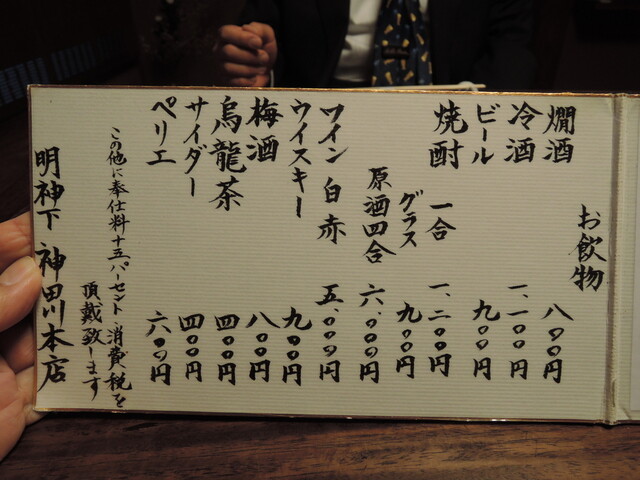 お飲物
燗酒 八〇〇円
冷酒 一、一〇〇円
ビール 九〇〇円
焼酎 一合 一、二〇〇円
グラス 九〇〇円
原酒四合 六、〇〇〇円
ワイン 白 赤 五、〇〇〇円
ウイスキー 九〇〇円
梅酒 八〇〇円
烏龍茶 四〇〇円
サイダー 四〇〇円
ペリエ 六〇〇円
この他に奉仕料十五パーセント、消費税を
頂戴致します
明神下 神田川本店